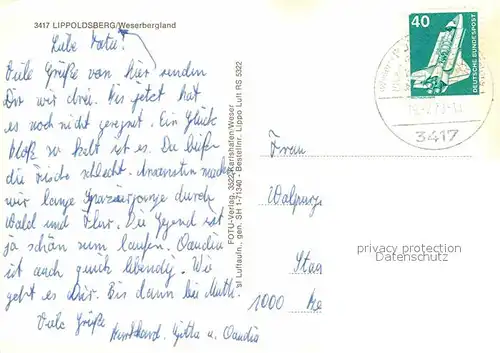 3417 LIPPOLDSBERG/Weserbergland
Liebe Mutti!
Viele Grüße von hier senden
Dir wir drei. Bis jetzt hat
es noch nicht geregnet. Ein Glück
bloß so kalt ist es. Da beißen
die Fische schlecht. Ansonsten machen
wir lange Spaziergänge durch
Wald und Flur. Die Gegend ist
ja schön zum laufen. Claudia
ist auch quick lebendig. Wie
geht es Dir. Bis dann bei Mutti.
Viele Grüße
Burkhard, Gitta u. Claudia
FOTU-Verlag, 3522 Karlshafen/Weser
sl Luftaufn., gen. SH 1-71340 - Bestellnr. Lippo Luft RS 5322
40
DEUTSCHE BUNDESPOST
3417
Frau
Walpurga
1000
privacy protection
DELCAMPE.NET